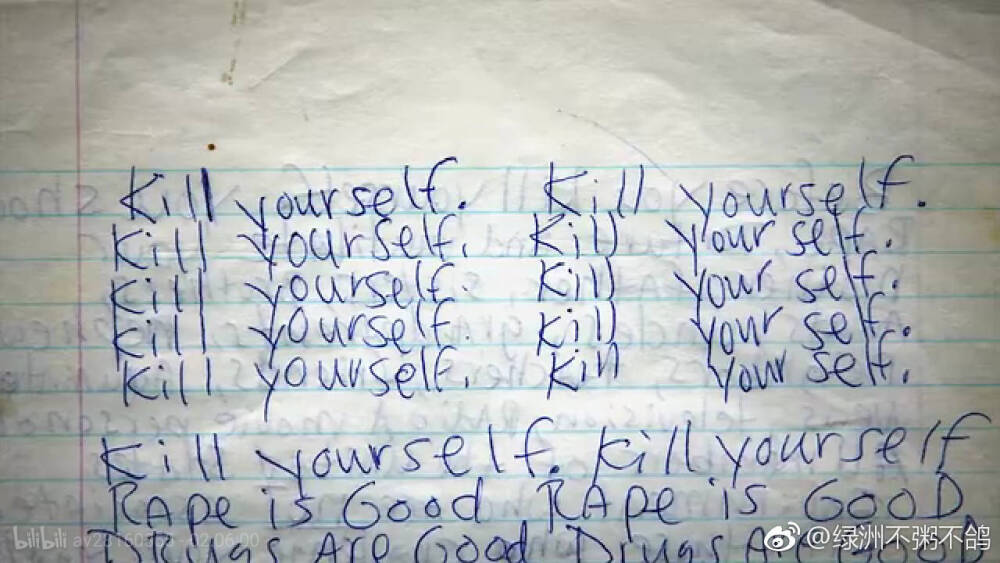 Kill yourself. Kill yourself.
Kill yourself. Kill your self.
Kill yourself. Kill your self.
Kill yourself. Kill your self.
Kill yourself. Kill your self.
Kill yourself. Kill yourself
RApe is Good RApe is GOOD
DRugs Are Good Drugs Are GOOD
bilibili 02:06:00
@绿洲不粥不鸽